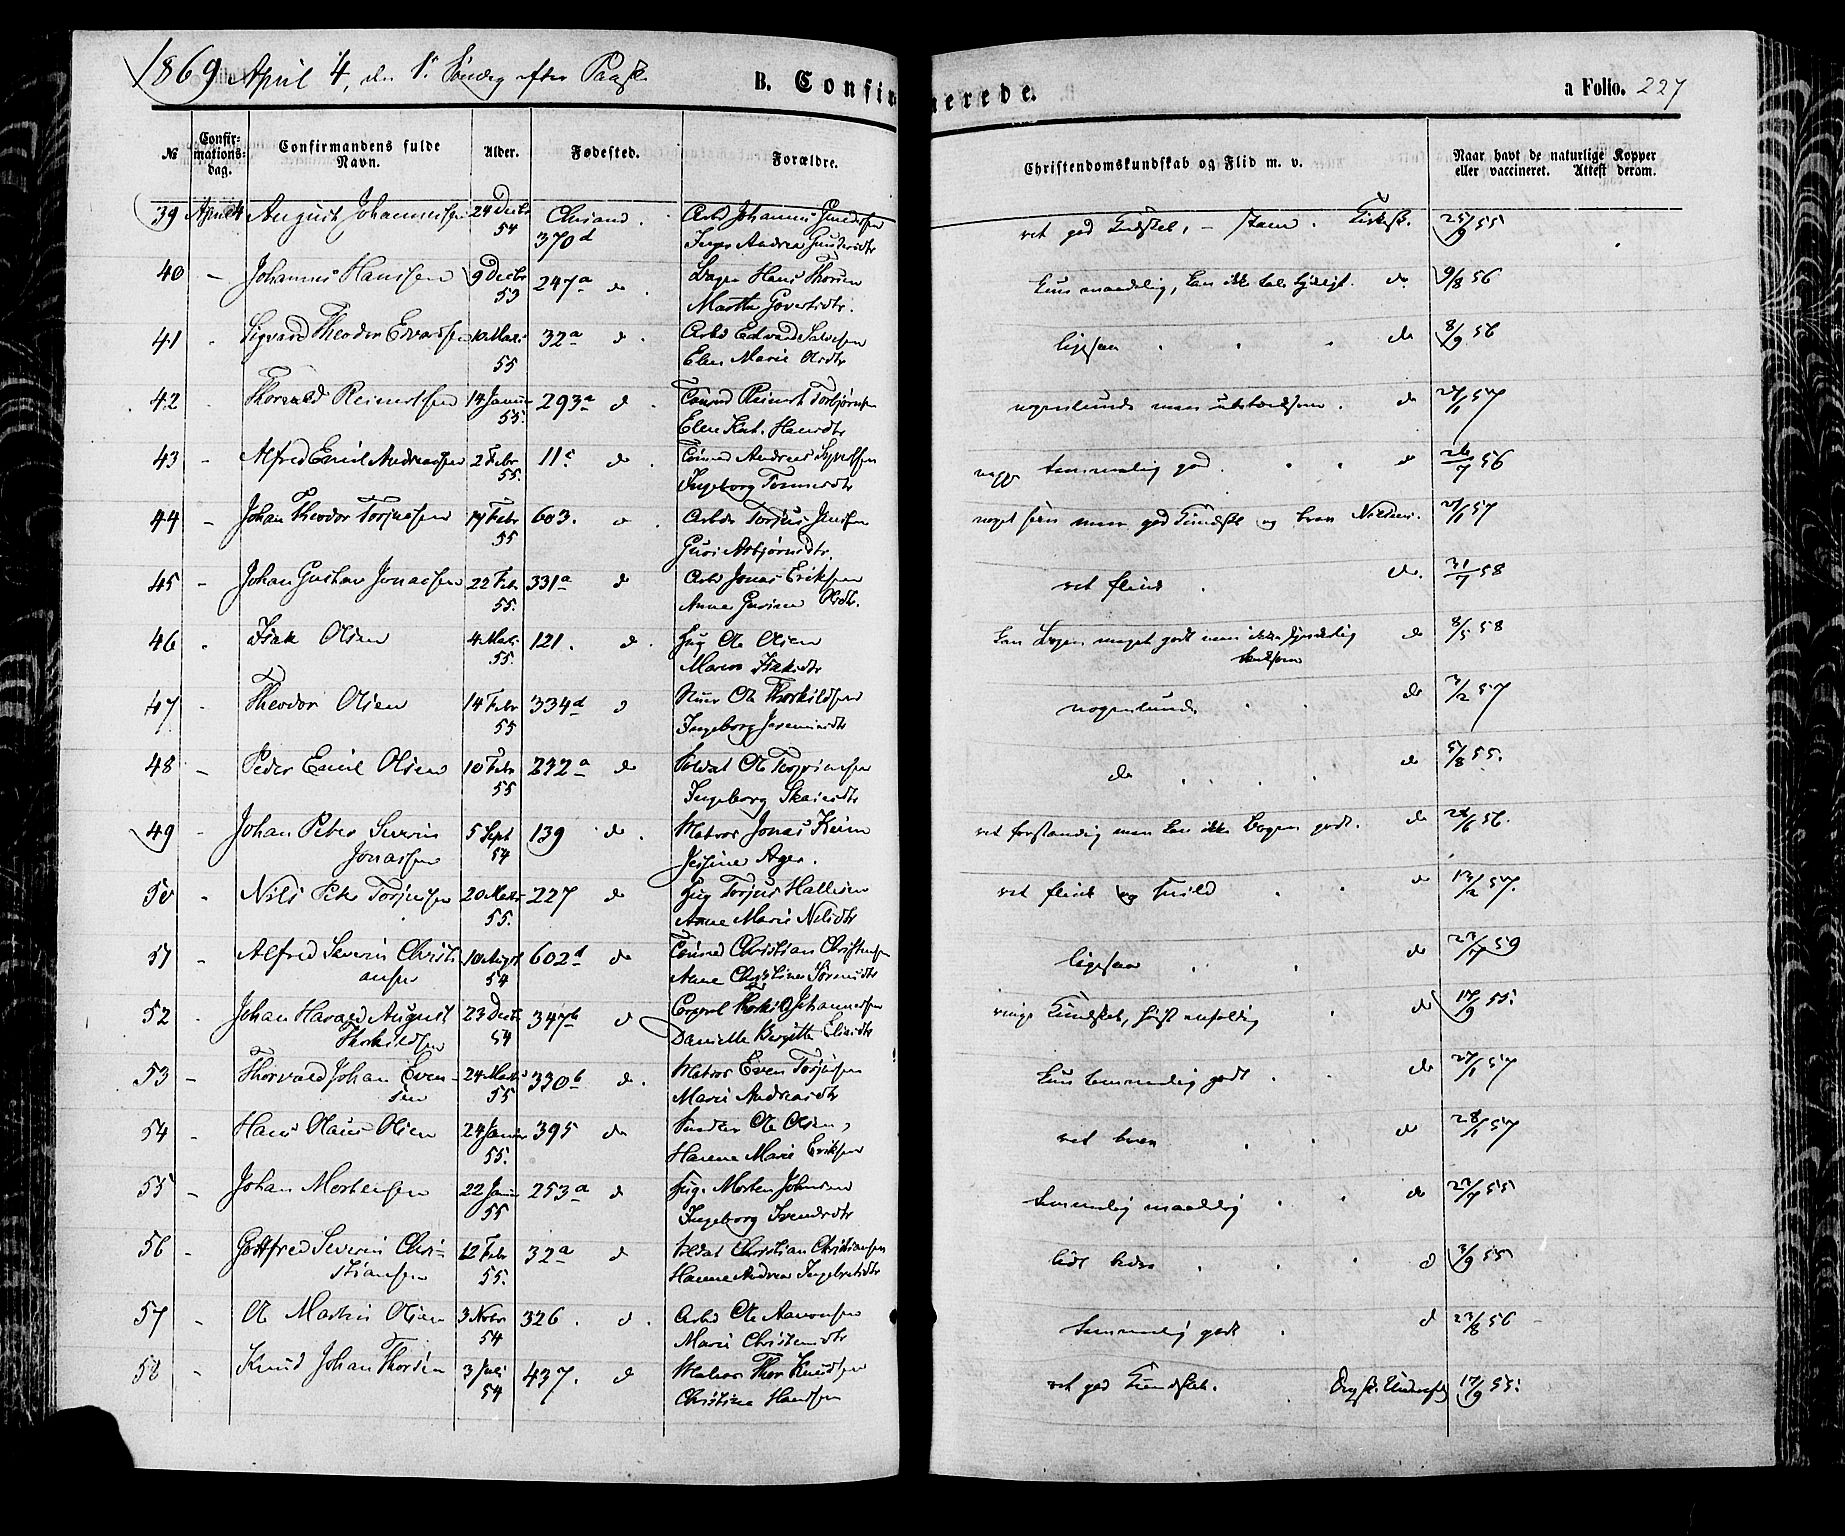 1869 April 4, den 1. Søndag efter Paaske
B. Confirmerede.
a Folio. 227
№ Confirmations-dag. Confirmandens fulde Navn. Alder. Fødested. Forældre. Christendomskundskab og Flid m. v. Naar havt de naturlige Kopper eller vaccineret. Attest derom.
39 April 4 August Johannessen 24 Decbr 54 Chrsand. 370d Arbd Johannes Inger Andrea ret god Kundskab, 25/9 55
40 - Johannes Hanssen 9 Decbr 53 247a do Hans Thorsen Marthe Govertsdtr. kun maadelig, kan ikke tale tydeligt. do 9/8 56
41 - Sigvard Theodor Edvardsen 10 Mars 55 32a d Arbd Edvard Salvesen Elen Marie Olsdtr ligesaa do 8/9 56
42 - Thorvald Reinertsen 14 Januar 55. 293a d Tømmd Reinert Torbjørnsen Elen Kat. Hansdtr nogenlunde men do 27/1 57
43 - Alfred Emil Andreassen 2 Febr 55. 11c d Tømmd Andreas Ingeborg temmelig god. d 26/7 56
44 - Johan Theodor Torjusen 17 Febr 55 603. d Arbdr Torjus Jensen Guri Asbjørnsdtr. noget men god Kundsk og brav 21/1 57
45 - Johan Gustav Jonassen 22 Feb 55. 331a d Arbd Jonas Eriksen Anne Gurine Olsdtr. ret flink do. 31/7 58
46 - Isak Olsen 4 Mars 55. 121. d. Ole Olsen Maren Isaksdtr kan Bogen meget godt men ikke do 8/5 58
47 - Theodor Olsen 14 Febr 55 334d d Ole Thorkildsen Ingeborg nogenlunde do 3/2 57
48 - Peder Emil Olsen 10 Febr 55 232a do Soldat Ole Ingeborg do do 5/8 55.
49 - Johan Peter Severin Jonassen 5 Sept 54 139 do. Matros Jonas Keim Jesine Ager. ret forstandig men kan ikke Bogen godt. do 24/6 56.
50 - Nils Peter Torjusen 20 Mars 55. 227 do Torjus Anne Marie Nilsdtr ret flink og do 13/2 57.
51 - Alfred Severin Christiansen 10 August 54 602d do Tømmd Christian Christensen Anne Christine ligesaa do 59
52 - Johan Harald August Thorkildsen 23 Decbr 54 347b d Corporal Thorkild Johannesen Danielle Birgitte Eliasdtr ringe Kundskab, høist enfoldig d 17/9 55.
53 - Thorvald Johan Evensen 24 Mars 55 330b d. Matros Even Torjusen Marie Andreasdtr kun temmelig godt do 27/1 57
54 - Hans Olaus Olsen 24 Januar 55. 395 do Ole Olsen, Hanne Marie Eriksen ret brav do 28/1 57
55 - Johan Mortensen 22 Janr 55 253a d Morten Johnsen Ingeborg Svendsdtr temmelig maadelig do 55
56 - Gottfred Severin Christiansen 12 Febr 55. 32a d Soldat Christian Christiansen Hanne Andrea Ingebretsdtr lidt bedre d 3/9 55
57 - Ole Martin Olsen 3 Novbr 54 326. d. Arbd Ole Aanonsen Marie Christensdtr temmelig godt. d 23/8 56
58 - Knud Johan Thorsen 3 Juli 54 437. d Matros Thor Knudsen Christine Hansen ret god Kundskab. 17/9 55.